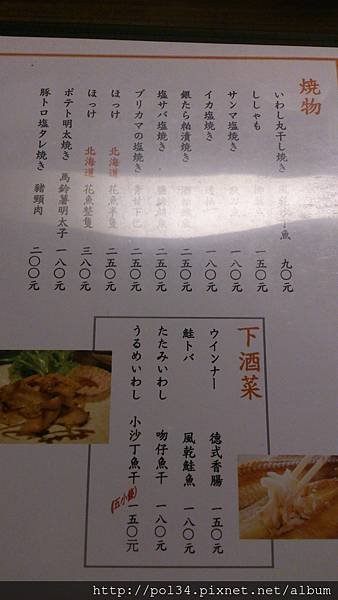 焼物
いわし丸干し焼き 風乾沙丁魚 九〇元
ししゃも 一五〇元
サンマ塩焼き 一八〇元
イカ塩焼き 一八〇元
銀たら粕漬焼き 二五〇元
塩サバ塩焼き 二五〇元
ブリカマの塩焼き 青甘下巴 二五〇元
ほっけ 北海道 花魚半隻 二五〇元
ほっけ 北海道 花魚整隻 三八〇元
ポテト明太焼き 馬鈴薯明太子 一八〇元
豚トロ塩タレ焼き 豬頸肉 二〇〇元
下酒菜
ウインナー 德式香腸 一五〇元
鮭トバ 風乾鮭魚 一八〇元
たたみいわし 吻仔魚干 一八〇元
うるめいわし 小沙丁魚干 (五小隻) 一五〇元
http://pol34.pixnet.net/album